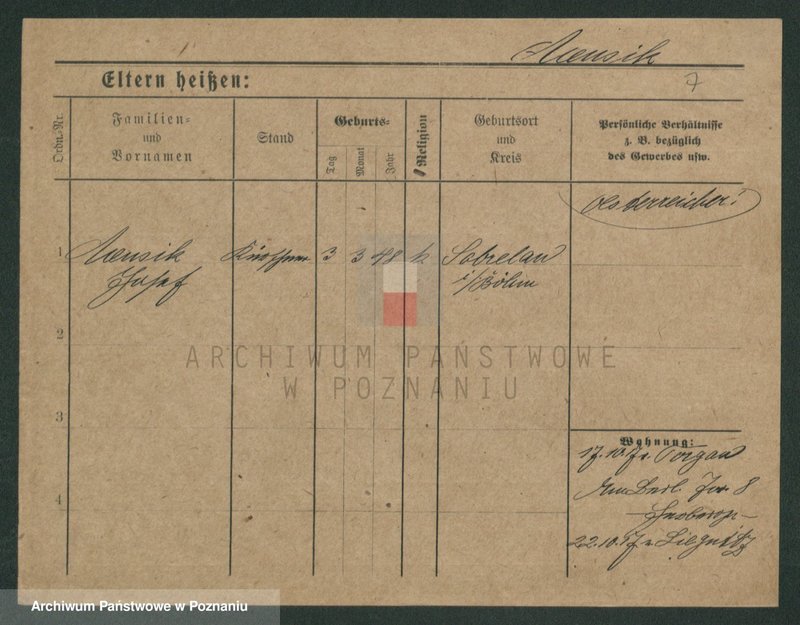 Aensik
7
Eltern heißen:
Ordn.-Nr.
Familien-
und
Vornamen
Stand
Geburts-
Tag
Monat
Jahr
Religion
Geburtsort
und
Kreis
Persönliche Verhältnisse
z. B. bezüglich
des Gewerbes usw.
Oesterreicher!
1
Aensik
Josef
Kürschner
3
3
48
k
i/Böhm
2
ARCHIWUM PAŃSTWOWE
W POZNANIU
3
Wohnung:
17.10.17 v. Torgau
Am Berl. Tor 8
4
22.10.17 v. Liegnitz
Archiwum Państwowe w Poznaniu